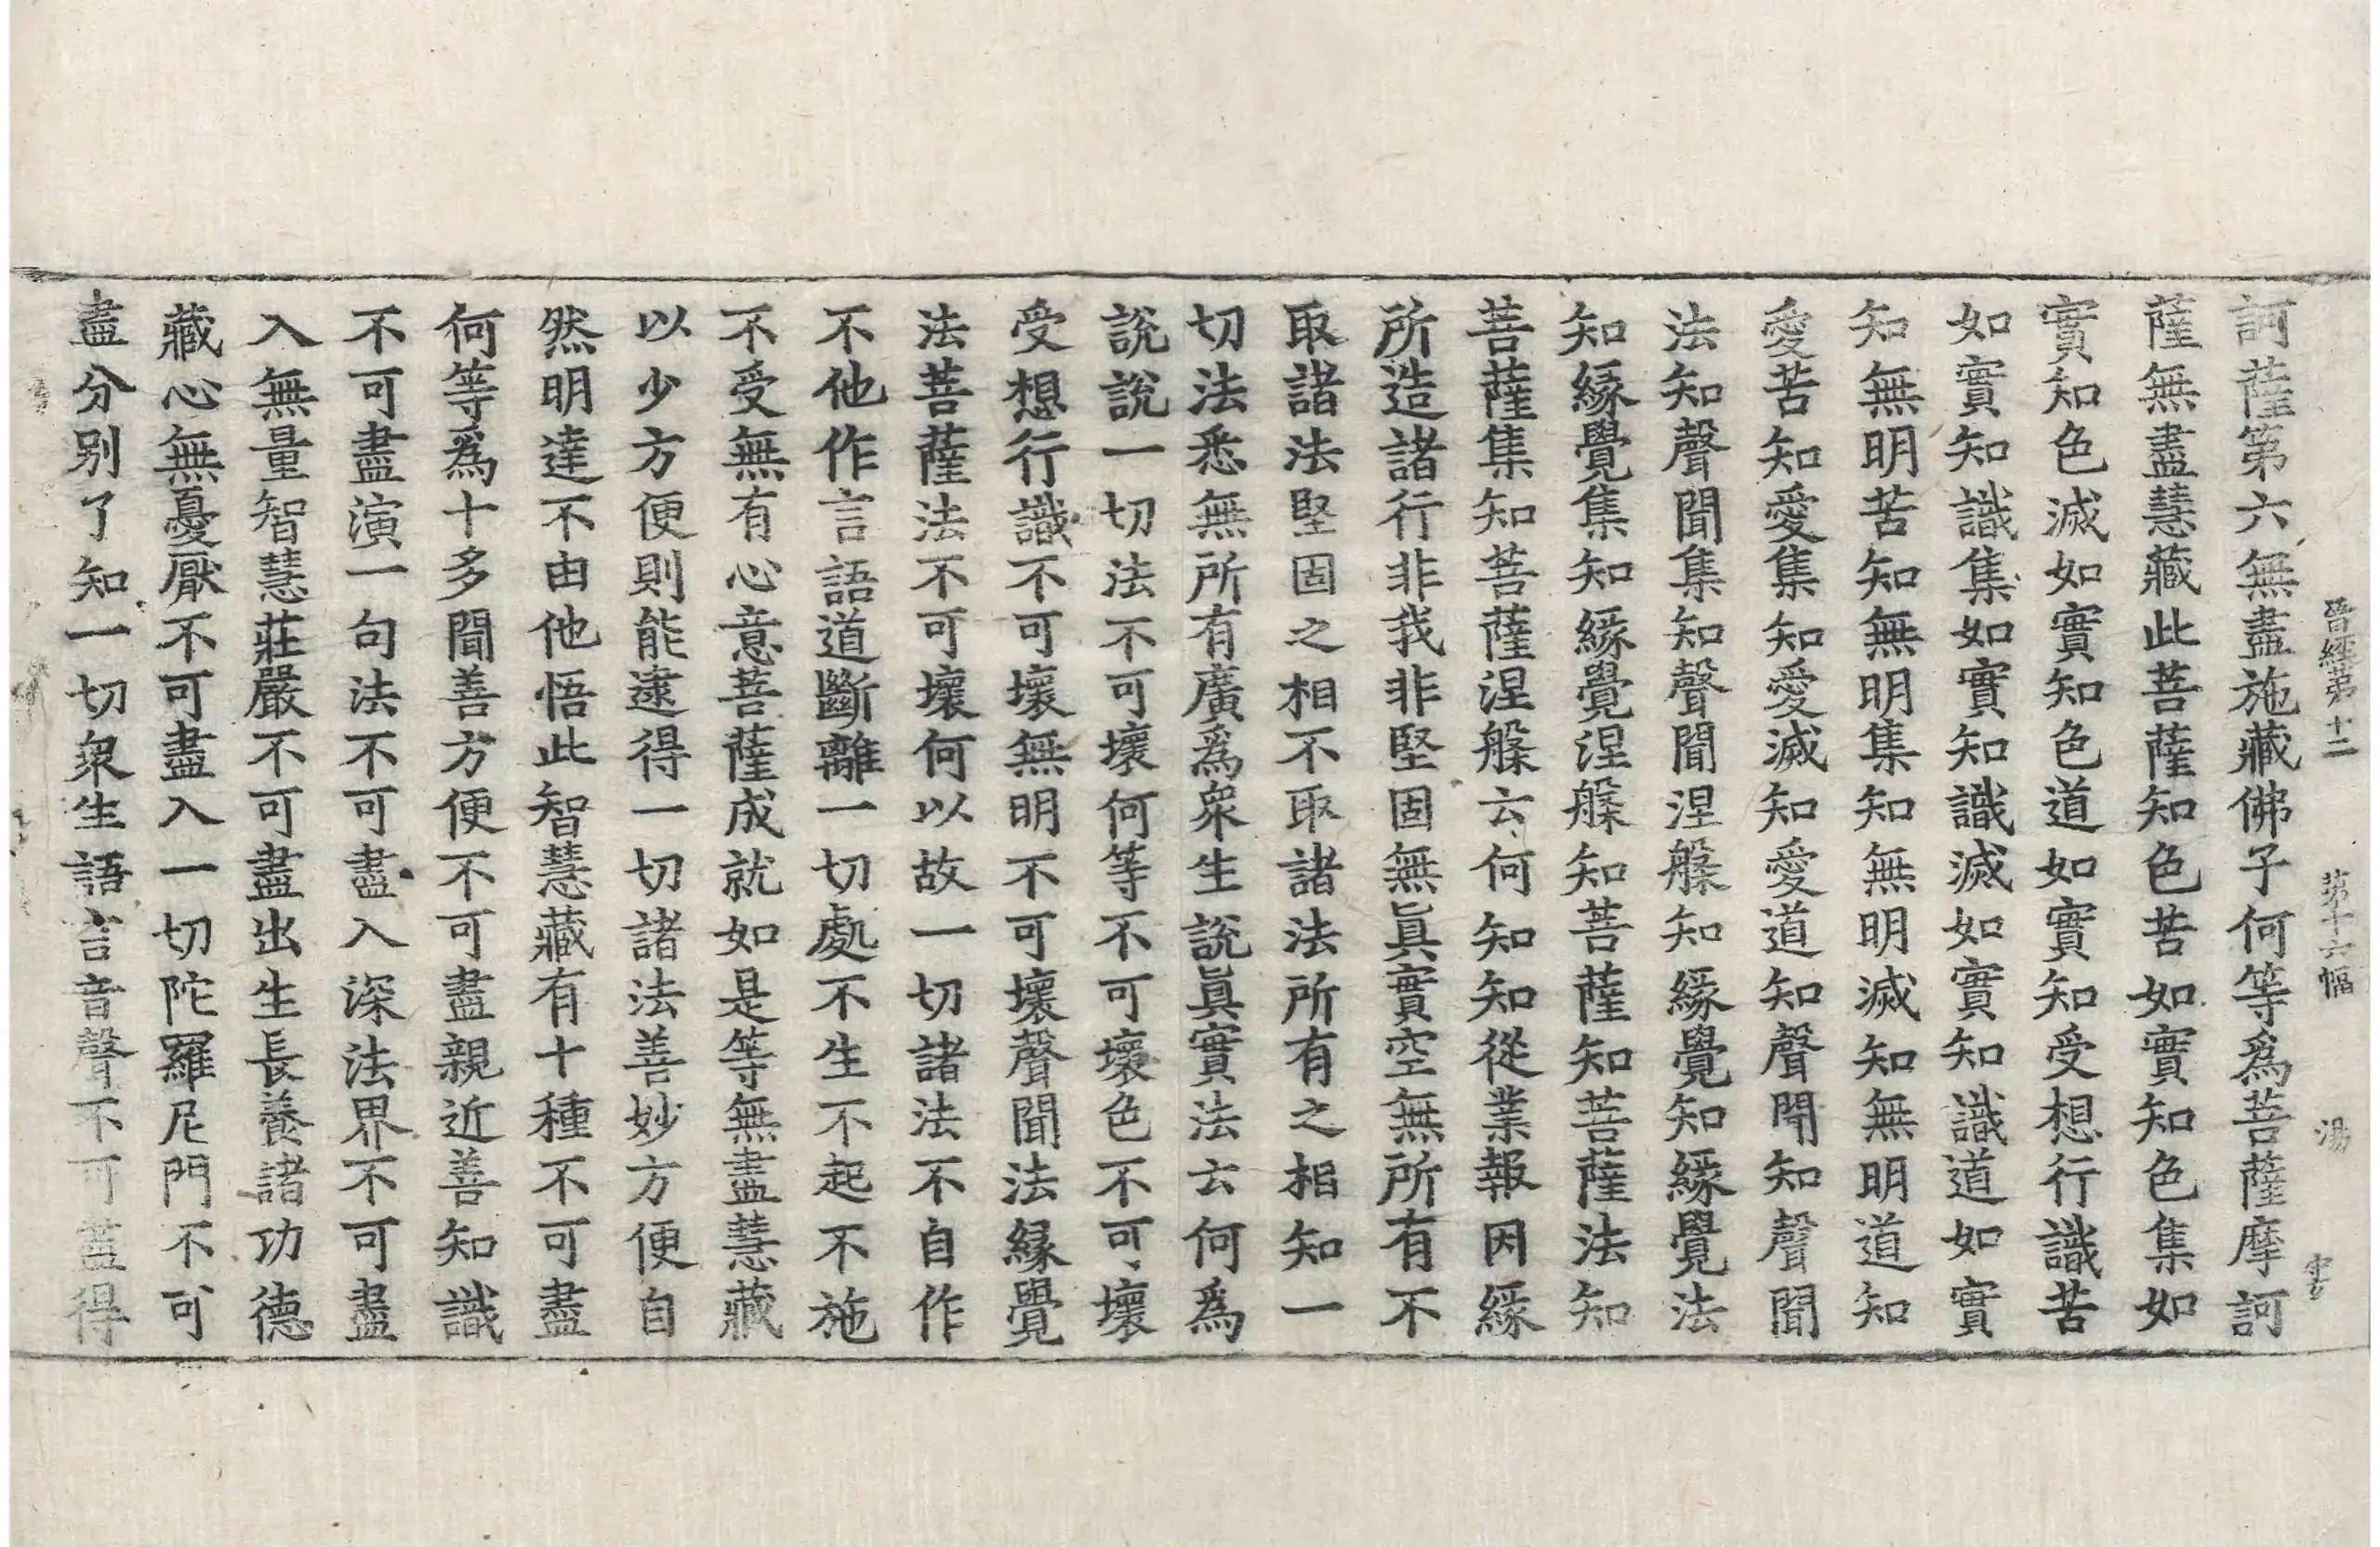 晉經第十二 第十六幅 湯 
訶薩第六無盡施藏佛子何等爲菩薩摩訶
薩無盡慧藏此菩薩知色苦如實知色集如
實知色滅如實知色道如實知受想行識苦
如實知識集如實知識滅如實知識道如實
知無明苦知無明集知無明滅知無明道知
愛苦知愛集知愛滅知愛道知聲聞知聲聞
法知聲聞集知聲聞涅槃知緣覺知緣覺法
知緣覺集知緣覺涅槃知菩薩知菩薩法知
菩薩集知菩薩涅槃云何知知從業報因緣
所造諸行非我非堅固無眞實空無所有不
取諸法堅固之相不取諸法所有之相知一
切法悉無所有廣爲衆生說眞實法云何爲
說說一切法不可壞何等不可壞色不可壞
受想行識不可壞無明不可壞聲聞法緣覺
法菩薩法不可壞何以故一切諸法不自作
不他作言語道斷離一切處不生不起不施
不受無有心意菩薩成就如是等無盡慧藏
以少方便則能逮得一切諸法善妙方便自
然明達不由他悟此智慧藏有十種不可盡
何等爲十多聞善方便不可盡親近善知識
不可盡演一句法不可盡入深法界不可盡
入無量智慧莊嚴不可盡出生長養諸功德
藏心無憂厭不可盡入一切陀羅尼門不可
盡分别了知一切衆生語言音聲不可盡得